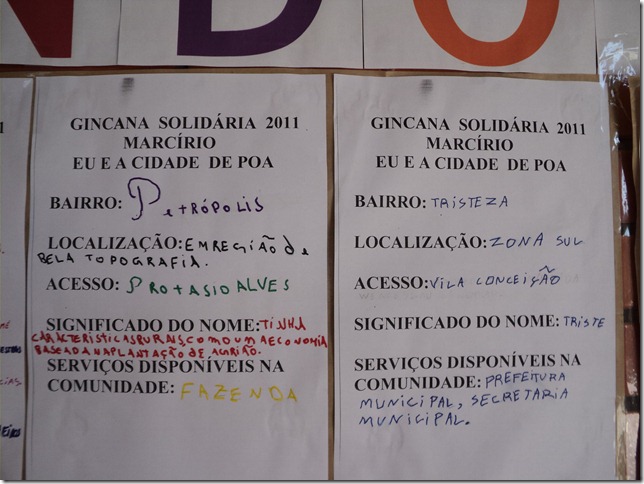 N D O
GINCANA SOLIDÁRIA 2011
MARCÍRIO
EU E A CIDADE DE POA
BAIRRO: PETRÓPOLIS
LOCALIZAÇÃO: EM REGIÃO DE
BELA TOPOGRAFIA.
ACESSO: PROTASIO ALVES
SIGNIFICADO DO NOME: TINHA
CARACTERISTICAS RURAIS, COMO UMA ECONOMIA
BASEADA NA PLANTAÇÃO DE AGRIÃO.
SERVIÇOS DISPONÍVEIS NA
COMUNIDADE: FAZENDA
GINCANA SOLIDÁRIA 2011
MARCÍRIO
EU E A CIDADE DE POA
BAIRRO: TRISTEZA
LOCALIZAÇÃO: ZONA SUL
ACESSO: VILA CONCEIÇÃO
SIGNIFICADO DO NOME: TRISTE
SERVIÇOS DISPONÍVEIS NA
COMUNIDADE: PREFEITURA
MUNICIPAL, SECRETARIA
MUNICIPAL.